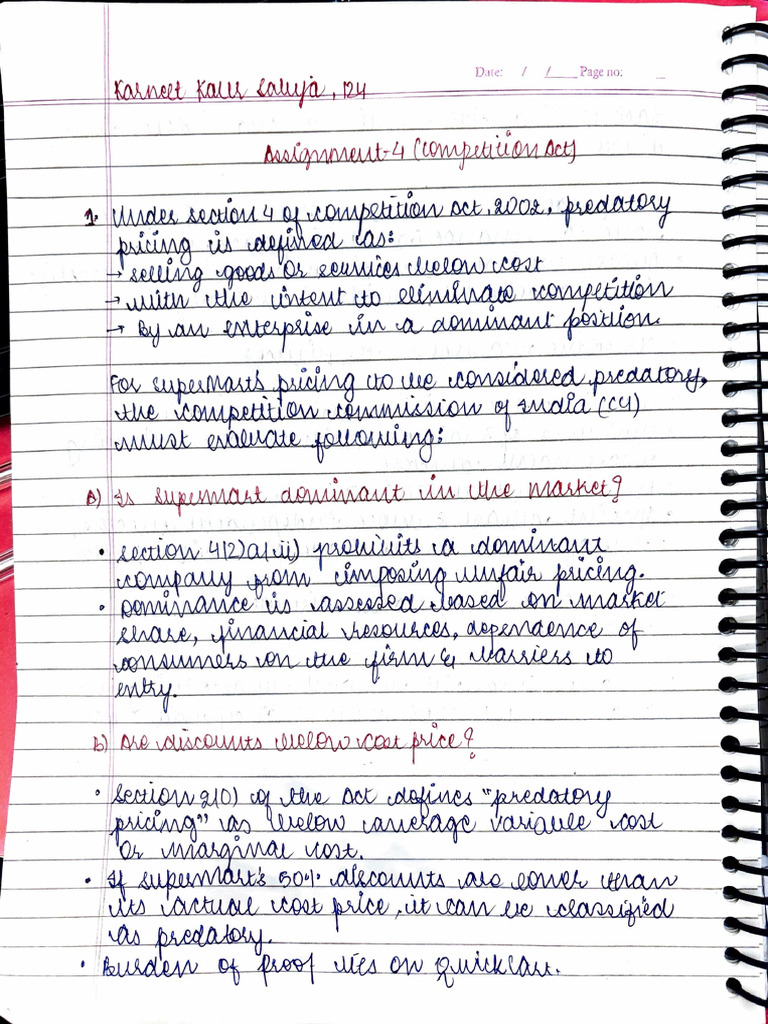 Date: / / Page no:
Karneet Kaur Saluja, 124
Assignment-4 (Competition Act)
1. Under section 4 of competition Act, 2002, predatory
pricing is defined as:
→ selling goods or services below cost
→ with the intent to eliminate competition
→ By an enterprise in a dominant position.
For supermart's pricing to be considered predatory,
the competition commission of India (CCI)
must evaluate following:
a) Is supermart dominant in the market?
• Section 4(2)(a)(ii) prohibits a dominant
company from imposing unfair pricing.
• Dominance is assessed based on market
share, financial resources, dependence of
consumers on the firm & barriers to
entry.
b) Are discounts below cost price?
• Section 2(O) of the Act defines "predatory
pricing" as below average variable cost
or marginal cost.
• If supermart's 50% discounts are lower than
its actual cost price, it can be classified
as predatory.
• Burden of proof lies on